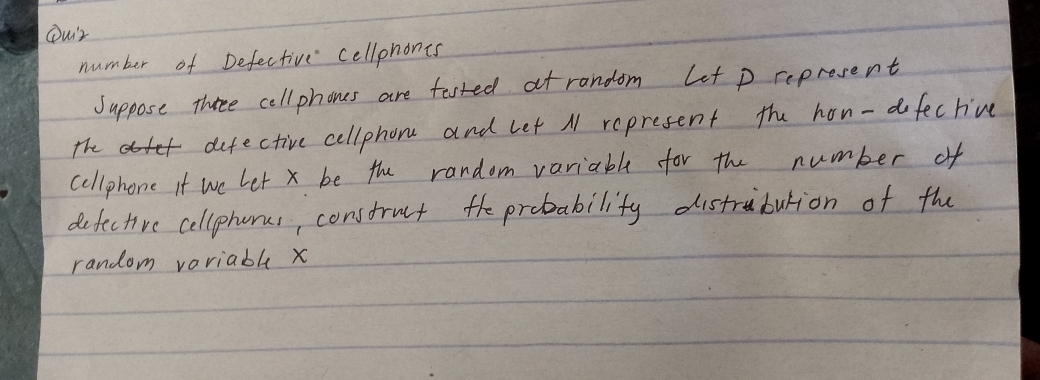 Quiz
number of Defective cellphones
Suppose three cellphones are tested at random Let D represent
the defective cellphone and Let N represent the non-defective
Cellphone if we Let X be the random variable for the number of
defective cellphones, construct the probability distribution of the
random variable X